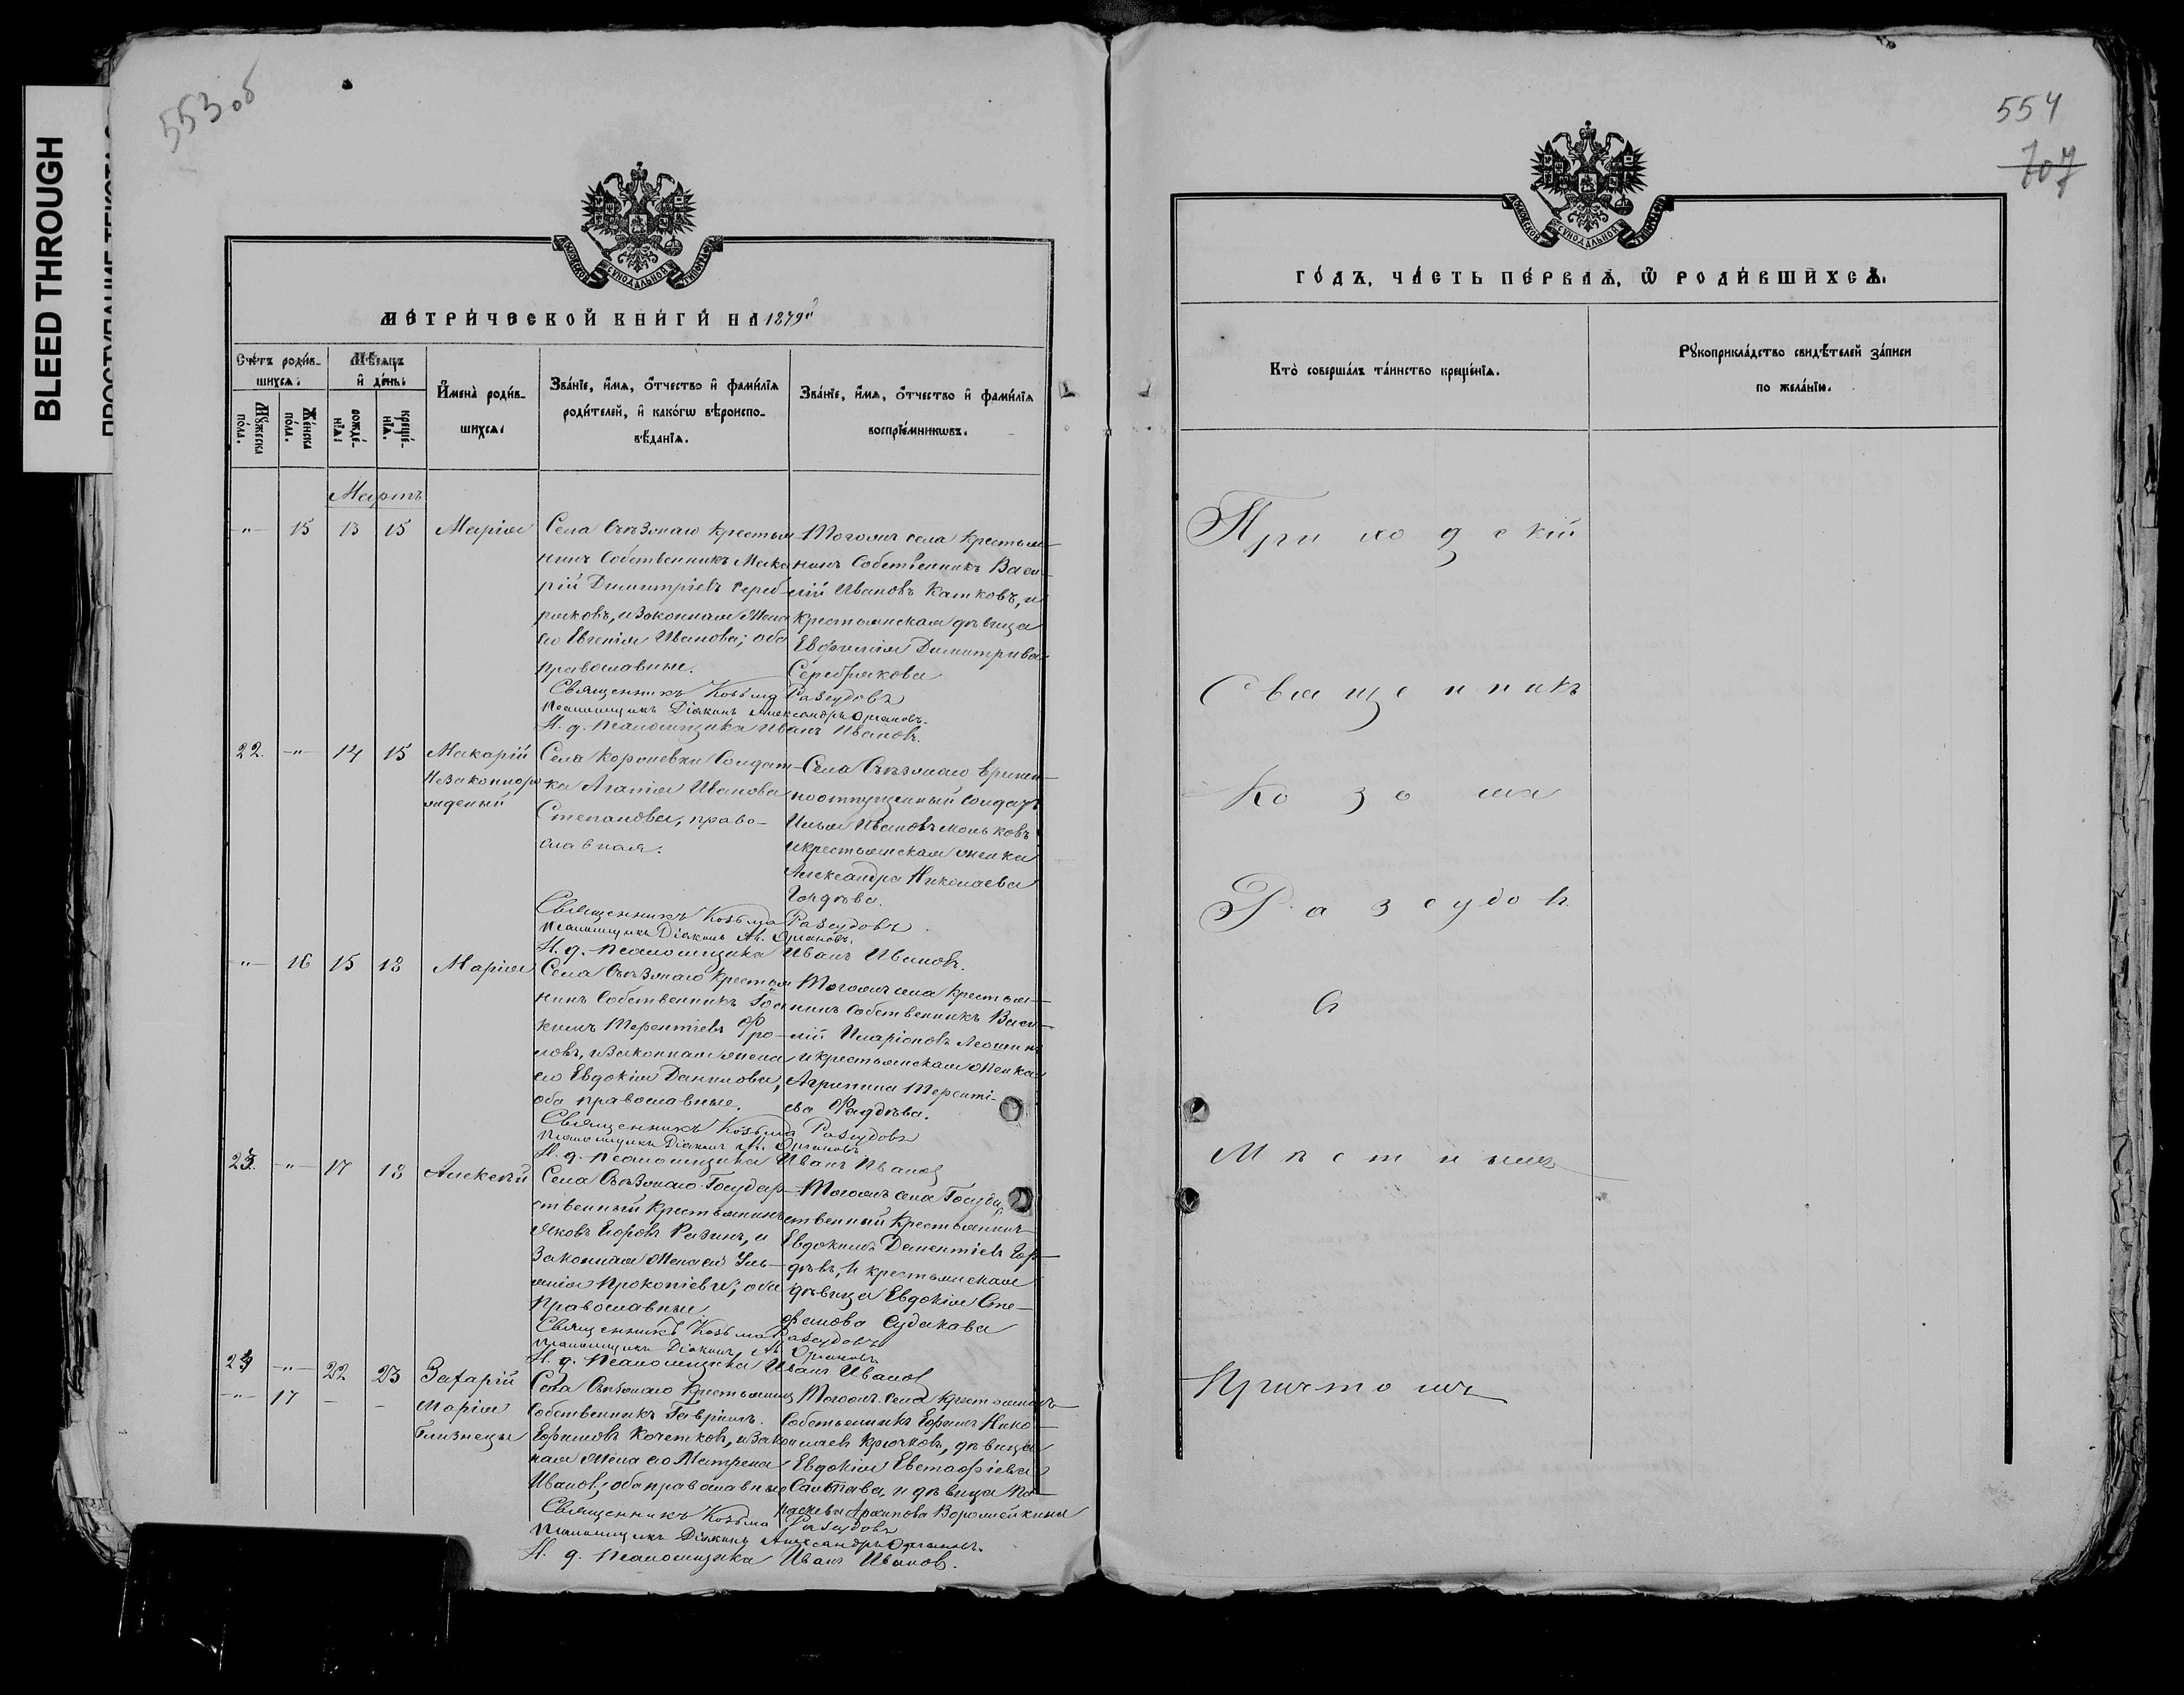 BLEED THROUGH
553 об
МОСКОВСКОЙ СѴНОДАЛЬНОЙ ТИПОГРАФІИ
МЕТРИ́ЧЕСКОЙ КНИ́ГИ НА 1879й
Сче́тъ роди́в-
шихсѧ:
Мѣ́сѧцъ
и҆ де́нь:
И҆мена̀ роди́в-
шихсѧ:
Зва́нїе, и҆́мѧ, ѻ҆́тчество и҆ фами́лїѧ
роди́телей, и҆ како́гѡ вѣроиспо-
вѣ́данїѧ.
Зва́нїе, и҆́мѧ, ѻ҆́тчество и҆ фами́лїѧ
воспрїе́мникѡвъ.
Мꙋ́жеска
по́ла.
Же́нска
по́ла.
рожде́-
нїѧ:
креще́-
нїѧ.
Мартъ
-"- 15 13 15 Марія
Села Съѣзжаго крестья
нинъ Собственникъ Мака
рій Димитріевъ Сереб
ряковъ, и законная Жена
его Евгенія Иванова; оба
православные.
Тогожъ села крестья-
нинъ Собственникъ Васи-
лій Ивановъ Катковъ, и
крестьянская дѣвица
Евфимія Димитріева
Серебрякова
Священникъ Козьма Разсудовъ
Псаломщикъ Діаконъ Александръ Органовъ.
И. д. псаломщика Иванъ Ивановъ.
22. -"- 14 15 Макарій
Незаконноро
жденный
Села Коро­невки Солдат-
ка Агапія Иванова
Степанова, право-
славная.
Села Съѣзжаго времен-
ноотпущенный солдатъ
Илья Ивановъ
и крестьянская женка
Александра Николаева
Гордѣева.
Священникъ Козьма Разсудовъ
Псаломщикъ Діаконъ Ал. Органовъ.
И. д. псаломщика Иванъ Ивановъ.
-"- 16 15 18 Марія
Села Съѣзжаго крестья
нинъ Собственникъ Іоа
кимъ Терентіевъ Фро-
ловъ, и законная жена
его Евдокія Данилова,
оба православные.
Тогожъ села крестья-
нинъ Собственникъ Васи-
лій Иларіоновъ
и крестьянская женка
Агрипина Теренті-
ева Фадѣева.
Священникъ Козьма Разсудовъ
Псаломщикъ Діаконъ Ал. Органовъ
И. д. псаломщика Иванъ Ивановъ
23. -"- 17 18 Алексѣй
Села Съѣзжаго Государ-
ственный крестьянинъ
Яковъ Егоровъ Разинъ, и
законная Жена его Уль-
янія Прокопіева; оба
православные.
Тогожъ села Государ
ственный крестьянинъ
Евдокимъ Дементіевъ Гор-
дѣевъ, и крестьянская
дѣвица Евдокія Сте-
фанова Судакова
Священникъ Козьма Разсудовъ
Псаломщикъ Діаконъ Ал. Органовъ
И. д. псаломщика Иванъ Ивановъ
24 -"- 22 23 Захарій
-"- 17 - - Марія
близнецы
Села Съѣзжаго крестьянинъ
Собственникъ Гавріилъ
Ефимовъ Кочетковъ, и закон
ная Жена его Матрена
Иванова, оба православные
Тогожъ села крестьянинъ
Собственникъ Ефимъ Нико-
лаевъ Крючковъ, дѣвица
Евдокія Евстафіева
и дѣвица Па
раскева Архипова Воромейкина
Священникъ Козьма Разсудовъ
Псаломщикъ Діаконъ Александръ Органовъ.
И. д. псаломщика Иванъ Ивановъ.
554
707
МОСКОВСКОЙ СѴНОДАЛЬНОЙ ТИПОГРАФІИ
ГО́ДЪ, ЧА́СТЬ ПЕ́РВАѦ, Ѽ РОДИ́ВШИХСѦ.
Кто̀ соверша́лъ та́инство креще́нїѧ.
Рꙋкоприкла́дство свидѣ́телей за́писи
по жела́нїю.
Приходскій
Священникъ
Козьма
Разсудовъ
съ
Мѣстнымъ
Причтомъ